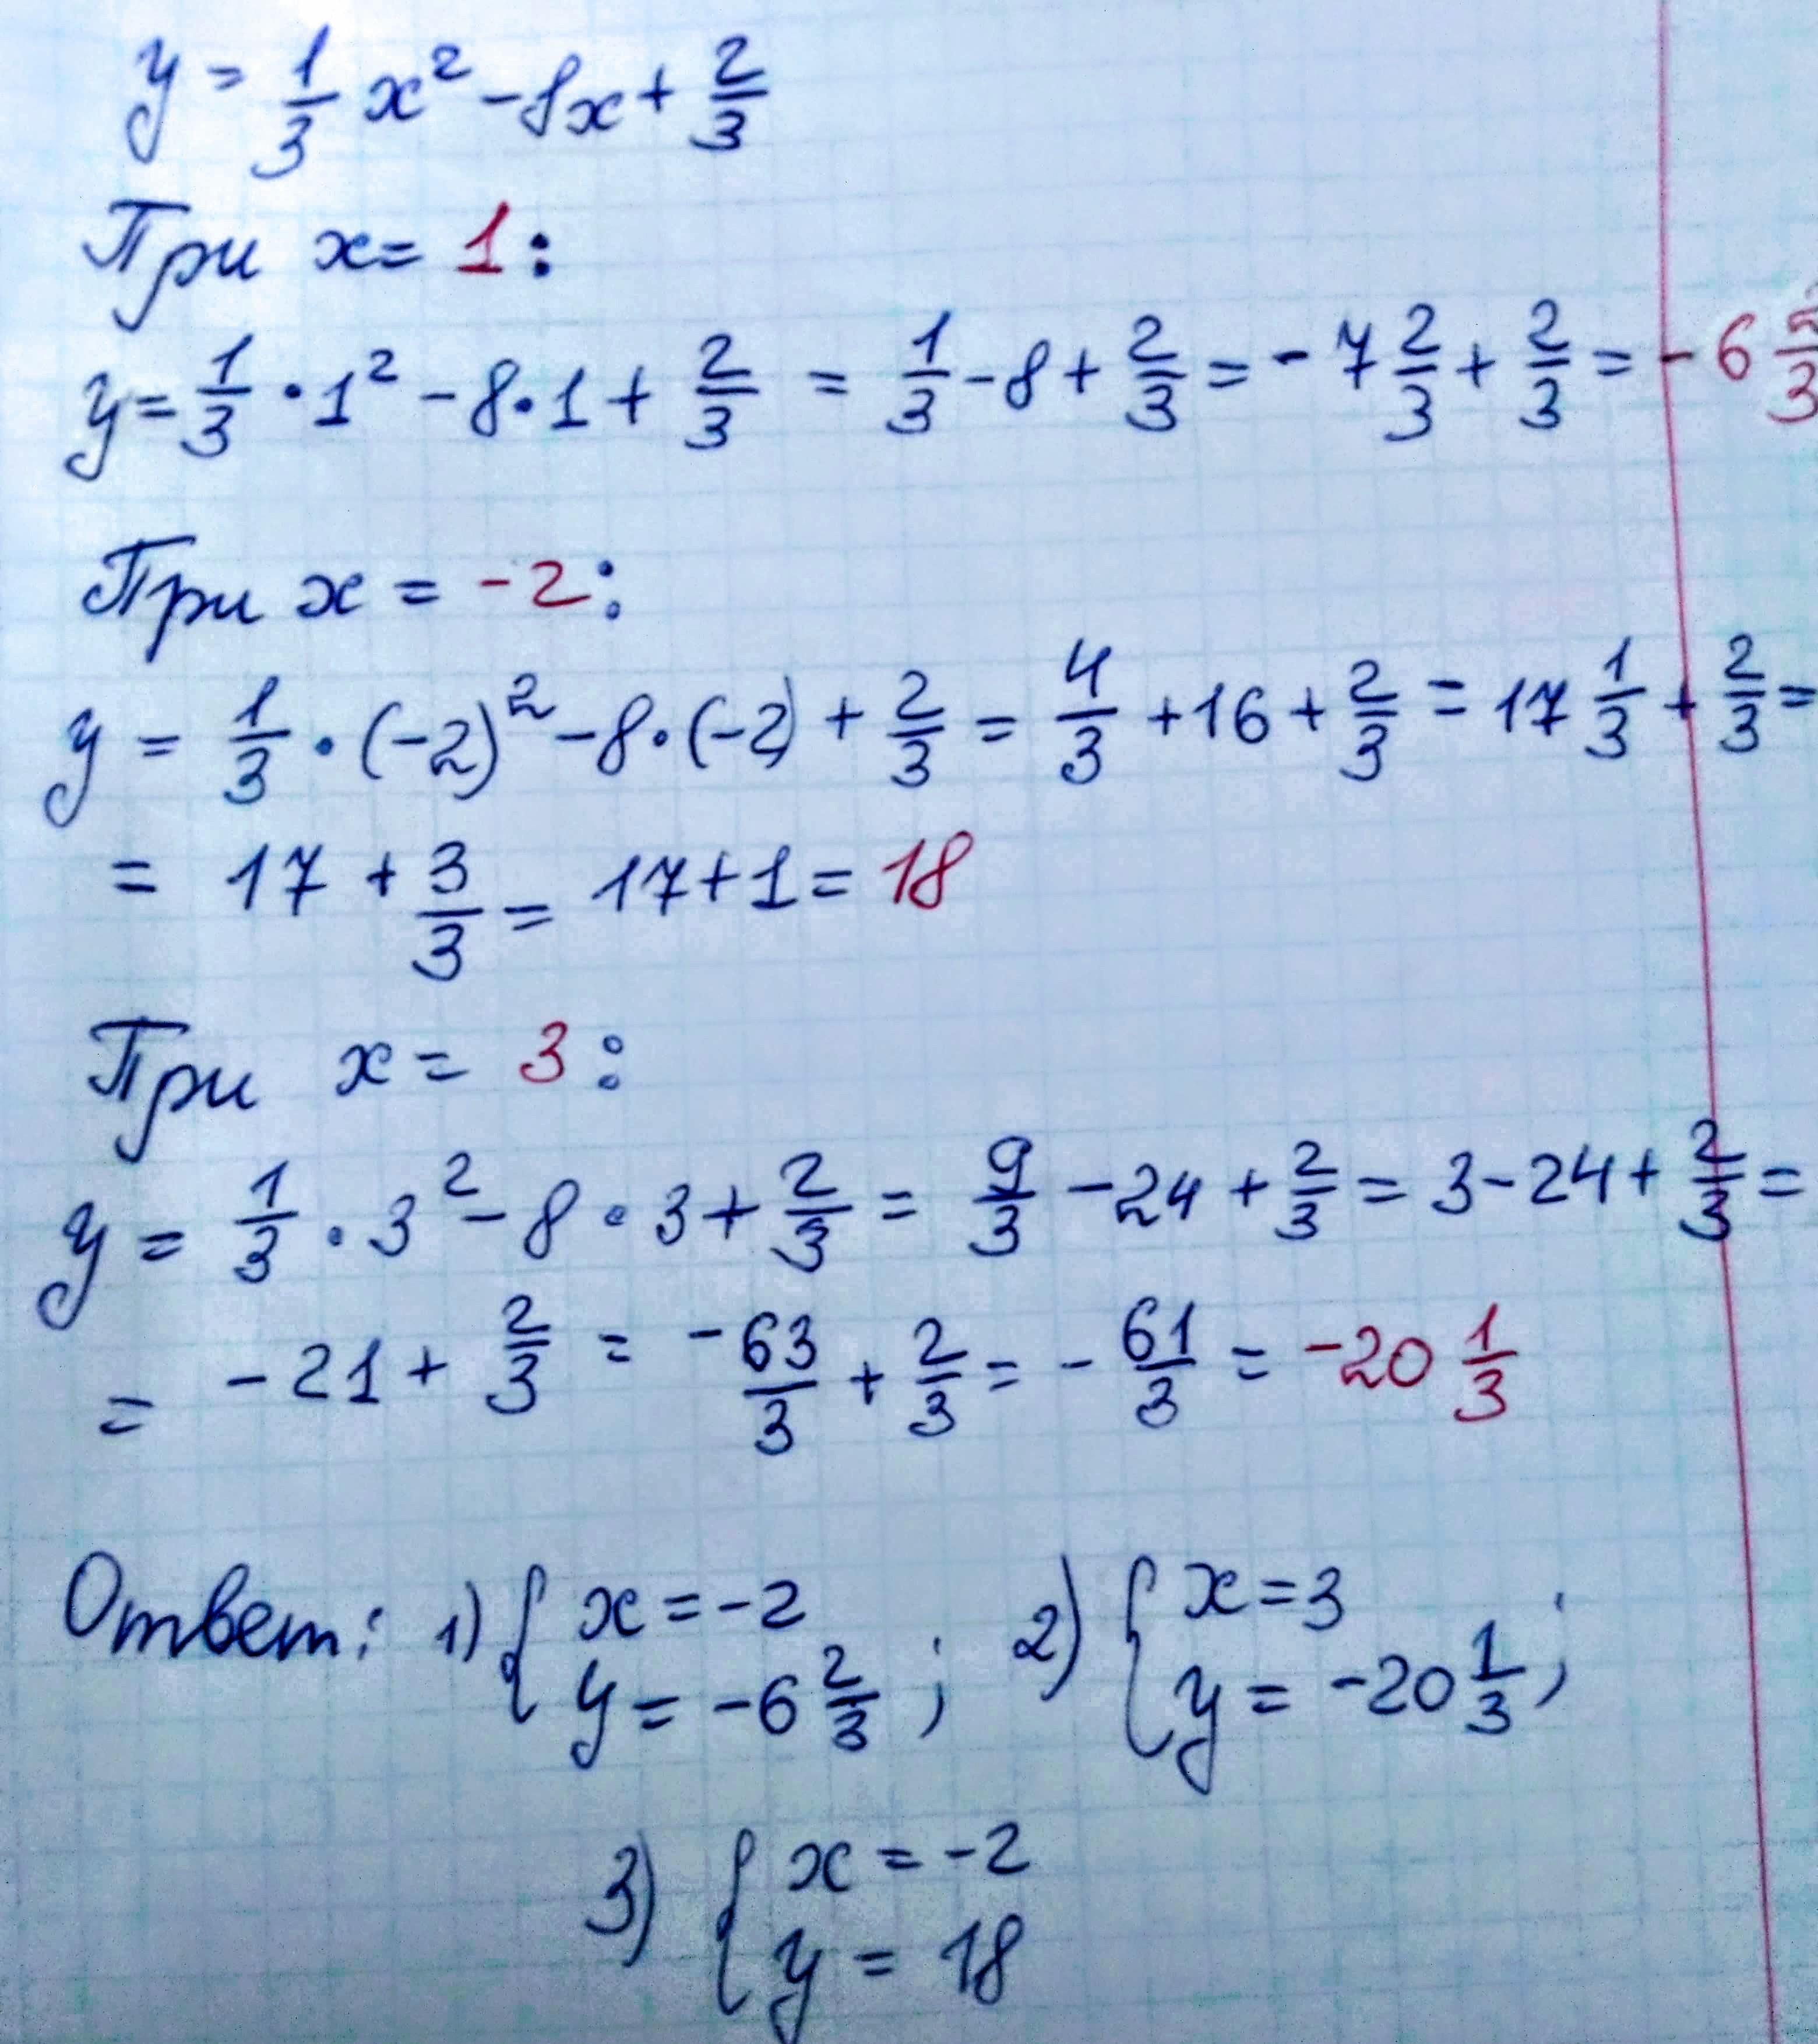 y = 1/3 x² - 8x + 2/3
При x = 1:
y = 1/3 · 1² - 8 · 1 + 2/3 = 1/3 - 8 + 2/3 = - 7 2/3 + 2/3 = - 6 2/3
При x = -2:
y = 1/3 · (-2)² - 8 · (-2) + 2/3 = 4/3 + 16 + 2/3 = 17 1/3 + 2/3 =
= 17 + 3/3 = 17 + 1 = 18
При x = 3:
y = 1/3 · 3² - 8 · 3 + 2/3 = 9/3 - 24 + 2/3 = 3 - 24 + 2/3 =
= -21 + 2/3 = -63/3 + 2/3 = - 61/3 = -20 1/3
Ответ: 1) { x = -2 2) { x = 3
y = -6 2/3 ; y = -20 1/3 ;
3) { x = -2
y = 18